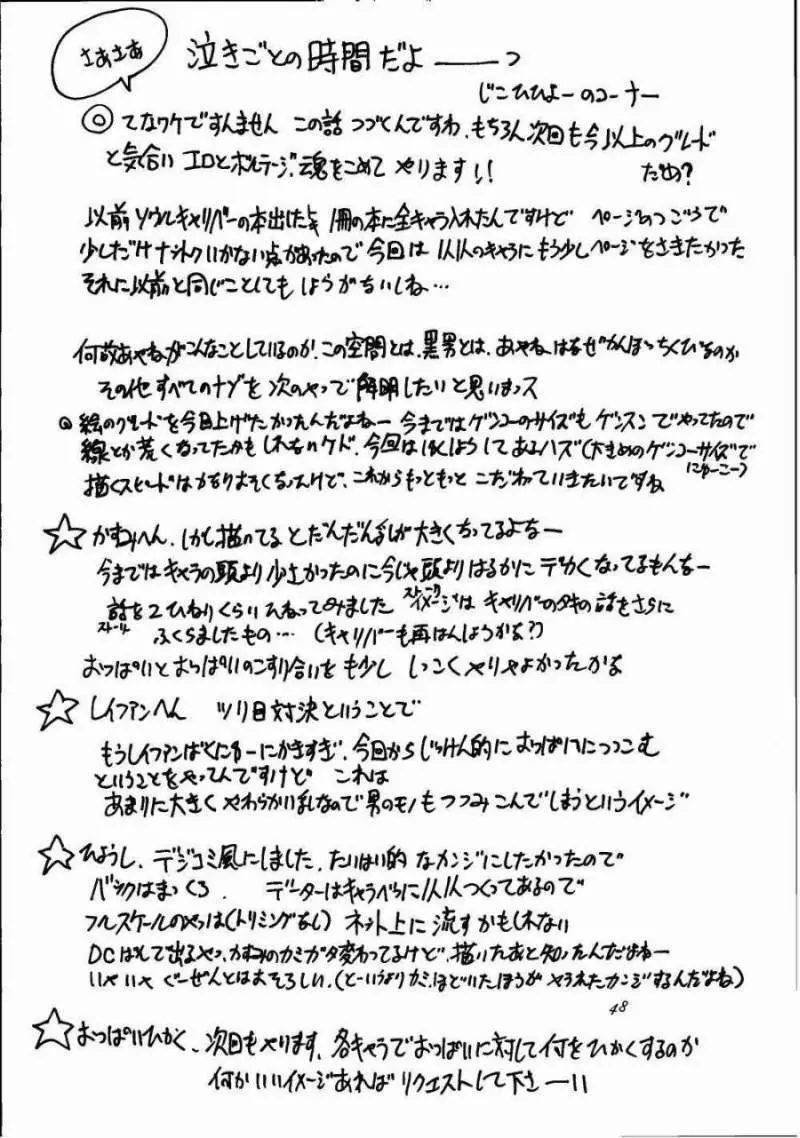 さあさあ
泣きごとの時間だよ――っ
じこひひょーのコーナー
◎ てなワケですんません この話 つづくんですわ、もちろん次回も今以上のグレード
と気合い エロとボルテージ、魂をこめて やります!! だめ?
以前ソウルキャリバーの本出したとき 1冊の本に全キャラ入れたんですけど ページのつごうで
少しだけナットクいかない点があったので今回は 1人1人のキャラにもう少しページをさきたかった
それに以前と同じことしても しょうがないしね…
何故あやねがこんなことしているのか、この空間とは、黒男とは、あやねはなぜ
その他 すべてのナゾを 次のやつで 解明したいと思いまっス
◎ 絵のグレードを今回上げたかったんだよねー 今まではゲンコーのサイズも ゲンスンでやってたので
線とか荒くなってたかもしれないケド、今回は してあるハズ(大きめのゲンコーサイズで
描くスピードはかなりおそくなったけど、これからもっともっと こだわっていきたいですね にゅーこー)
☆ かすみへん、しかし描いてるとだんだん乳が大きくなってるよなー
今まではキャラの頭より少さかったのに今じゃ頭よりはるかに デカくなってるもんなー
話を2ひねりくらいひねってみました イメージは キャリバーのタキの話をさらに
ストーリー
ふくらましたもの… (キャリバーも再はんしようかな?)
おっぱいとおっぱいのこすり合いをも少し しつこくやりゃよかったかな
☆ レイファンへん ツリ目対決ということで
もうレイファンばくにゅーにかきすぎ、今回からじっけん的におっぱいにつっこむ
ということをやってんですけど これは
あまりに大きく やわらかい乳なので男のモノもつつみこんでしまうというイメージ
☆ ひょうし、デジコミ風にしました、たいはい的 なカンジにしたかったので
バックはまっくろ、 データーはキャラべつに1人1人つくってあるので
フルスケールのやつは(トリミングなし) ネット上に 流すかもしれない
DC 出るやつ、かすみのカミガタ変わってるけど、描いたあと知ったんだよねー
いやいや ぐーぜんとはおそろしい、(とーいうよりカミ、ほどいたほうが やられたカンジするんだよね)
48
☆ おっぱいひかく、次回もやります、各キャラでおっぱいに対して何をひかくするのか
何かいいイメージあれば リクエストして下さーい